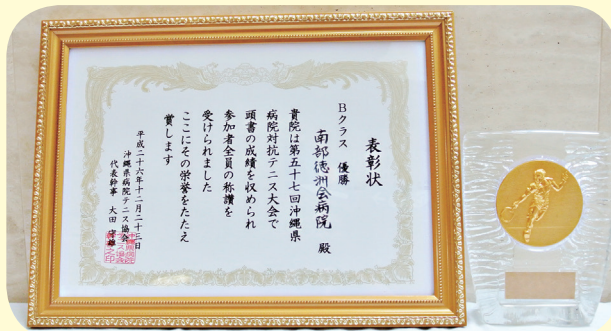 表彰状
Bクラス 優勝
南部徳洲会病院 殿
貴院は第五十七回沖縄県
病院対抗テニス大会で
頭書の成績を収められ
参加者全員の称讃を
受けられました
ここにその栄誉をたたえ
賞します
平成二十六年十二月二十一日
沖縄県病院テニス協会
代表幹事 大田守雄